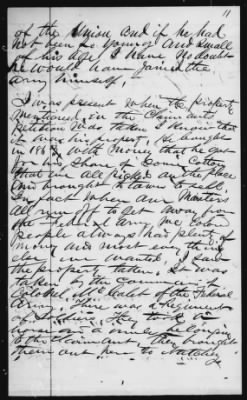 11
of the Union and if he had
not been so young and small
of his age, I have no doubt
he would have joined the
army himself,
I was present when the property
mentioned in the Claimants
Petition was taken I know that
it was his property. He bought
in 186 with money that he got
for his share of Corn & Cotton
that we all picked on the place
and brought to town to sell
In fact when our Masters
all run off to get away from
the Federal Army we Colored
people always had plenty of
money and most every thing
else we wanted, I saw
the property taken. It was
taken by the command of
Colonel McCaleb of the Federal
Army. There was a Regiment
of Soldiers They took a
horse and a mule belonging
to the Claimant, they brought
them out here to Natchez